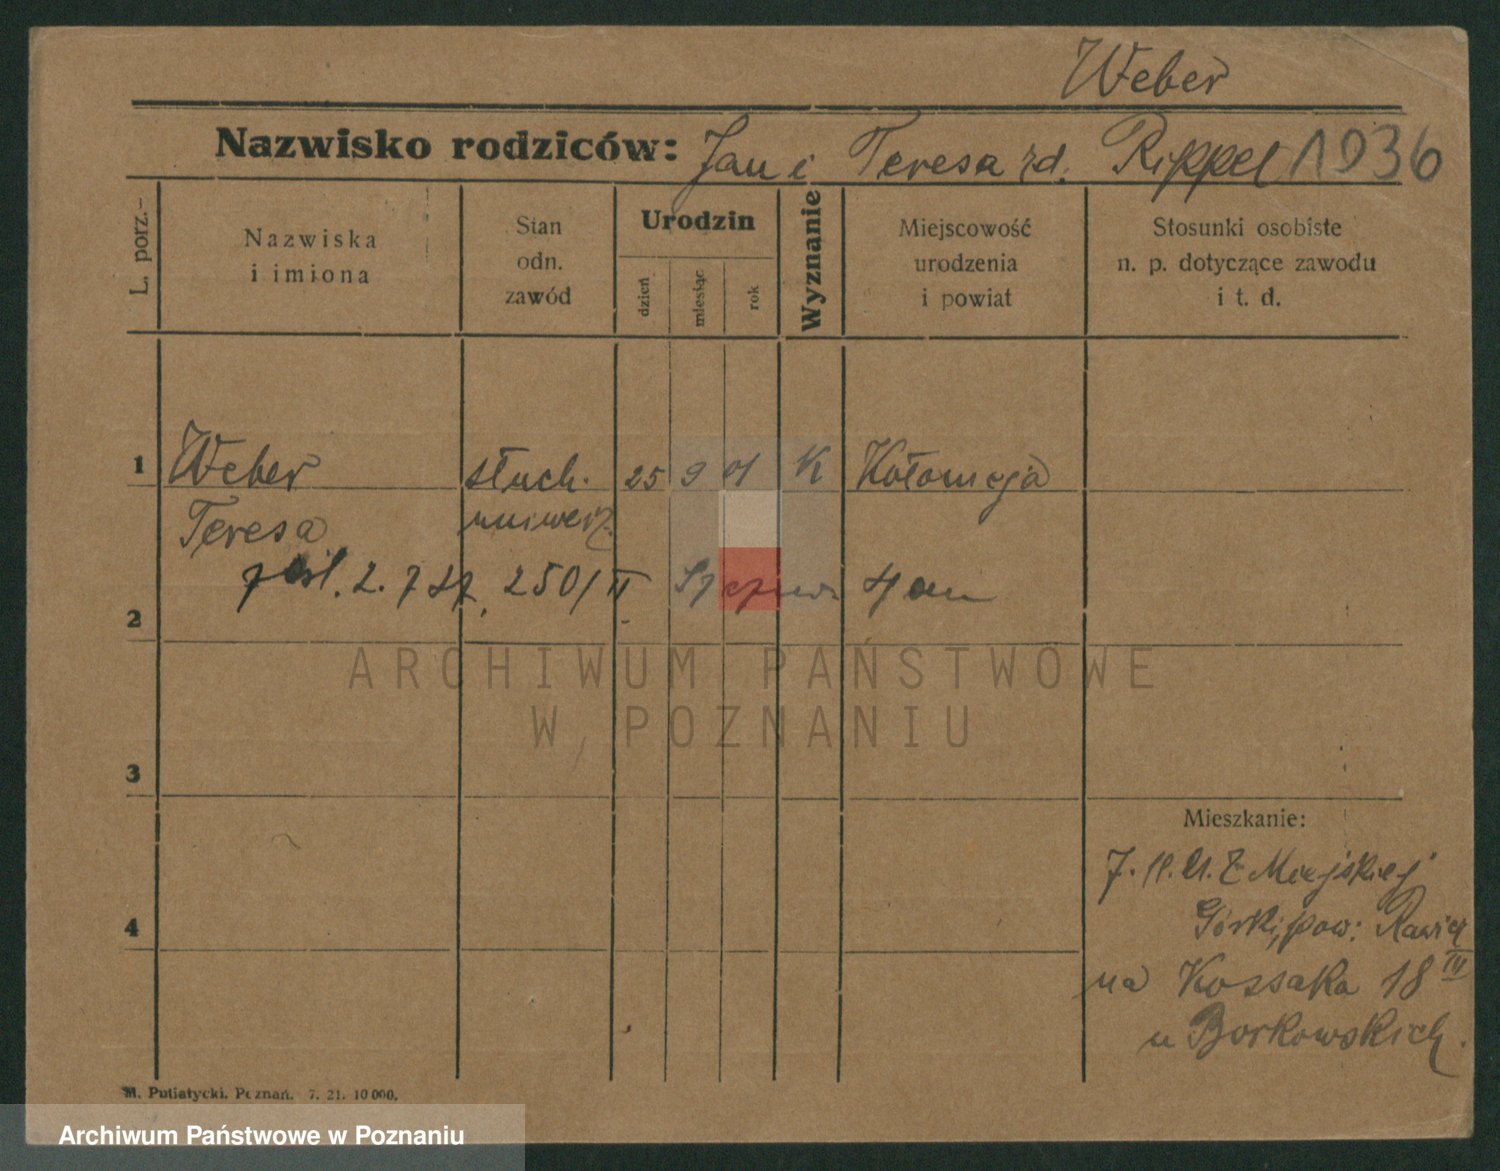 Weber
Nazwisko rodziców: Jan i Teresa zd. Rippel 1936
L. porz.-
Nazwiska
i imiona
Stan
odn.
zawód
Urodzin
dzień
miesiąc
rok
Wyznanie
Miejscowość
urodzenia
i powiat
Stosunki osobiste
n. p. dotyczące zawodu
i t. d.
1 Weber słuch. 25 9 01 K Kołomyja
Teresa uniwerz.
2. 250/II
2
ARCHIWUM PAŃSTWOWE
W POZNANIU
3
Mieszkanie:
21. Z Miejskiej
4
Górki, pow: Rawicz
na Kossaka 18 III
u Borkowskich.
M. Putiatycki, Poznań. 7. 21. 10 000.
Archiwum Państwowe w Poznaniu